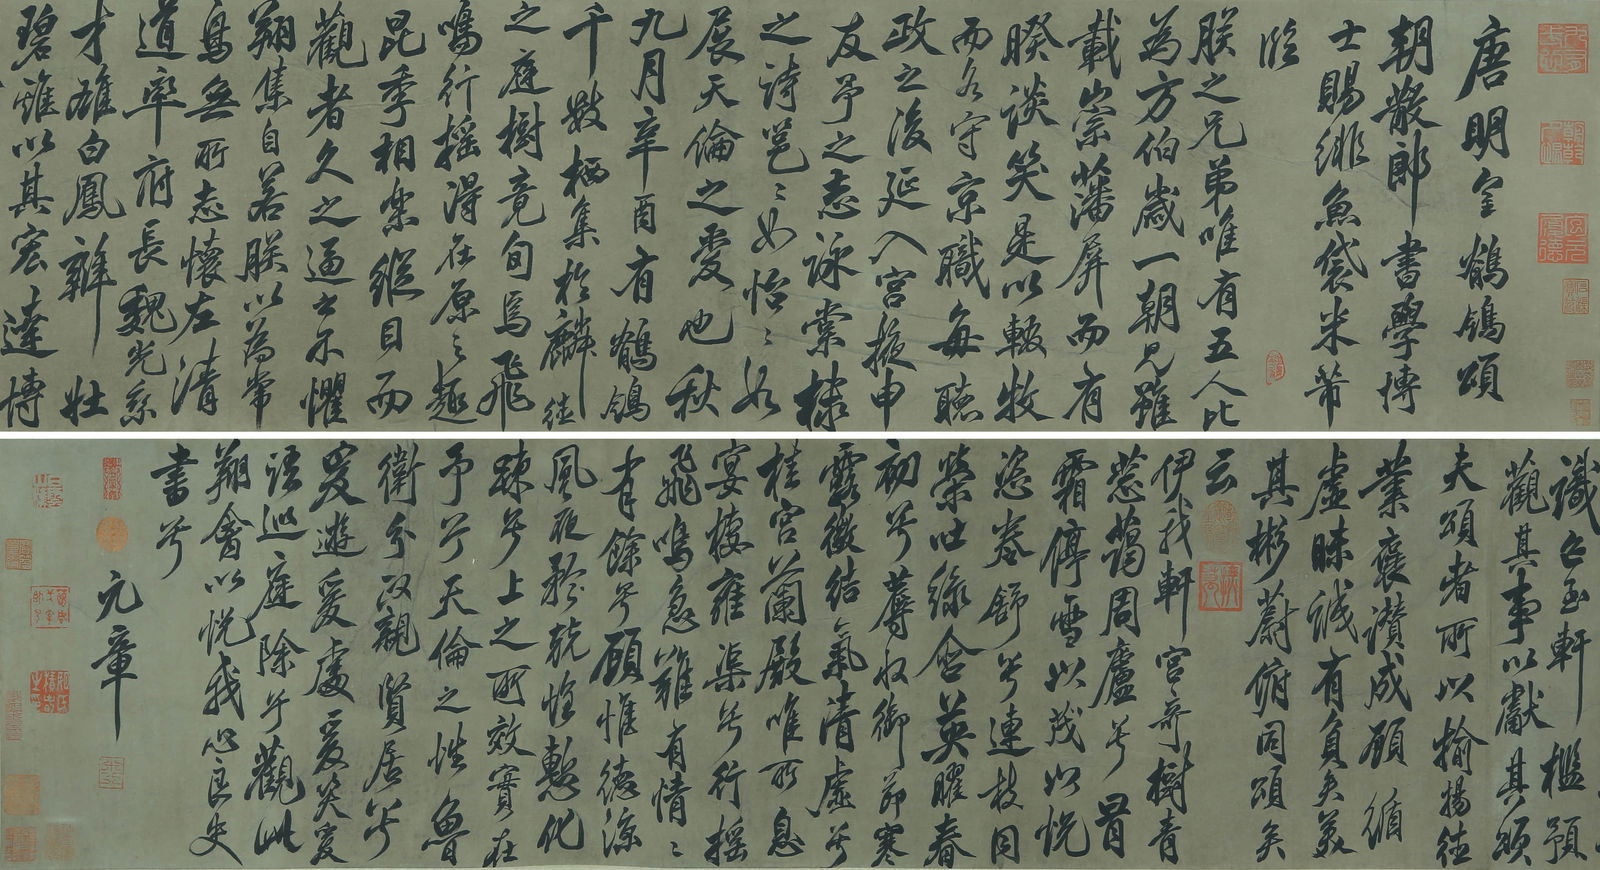 唐明皇鶺鴒頌
朝散郎書學博
士賜緋魚袋米芾
臨
朕之兄弟唯有五人比
為方伯歲一朝見雖
載崇藩屏而有
睽談笑是以輟牧
而各守京職每聽
政之後延入宮掖申
友予之志詠棠棣
之詩邕〻如怡〻如
展天倫之愛也秋
九月辛酉有鶺鴒
千數栖集於麟德
之庭樹竟旬焉飛
鳴行搖得在原之趣
昆季相樂縱目而
觀者久之逼之不懼
翔集自若朕以為常
鳥無所志懷左清
道率府長魏光乘
才雄白鳳辯壯
碧雞以其宏達博
識召至軒檻預
觀其事以獻其頌
夫頌者所以揄揚德
業褒讚成顧循
虛昧誠有負矣美
其彬蔚俯同頌矣
云
伊我軒宮奇樹青
蔥藹周廬兮冒
霜停雪以茂以悅
恣卷舒兮連枝同
榮吐綠含英曜春
初兮蓐收御節寒
露微結氣清虛兮
桂宮蘭殿唯所息
宴棲雍渠兮行搖
飛鳴急難有情〻
有餘兮顧惟德涼
夙夜兢兢惟慙化
疎兮上之所效實在
予兮天倫之性魯
衛分政親賢居兮
爰遊爰處爰笑爰
語巡庭除兮觀此
翔禽以悅我心良史
書兮
元章